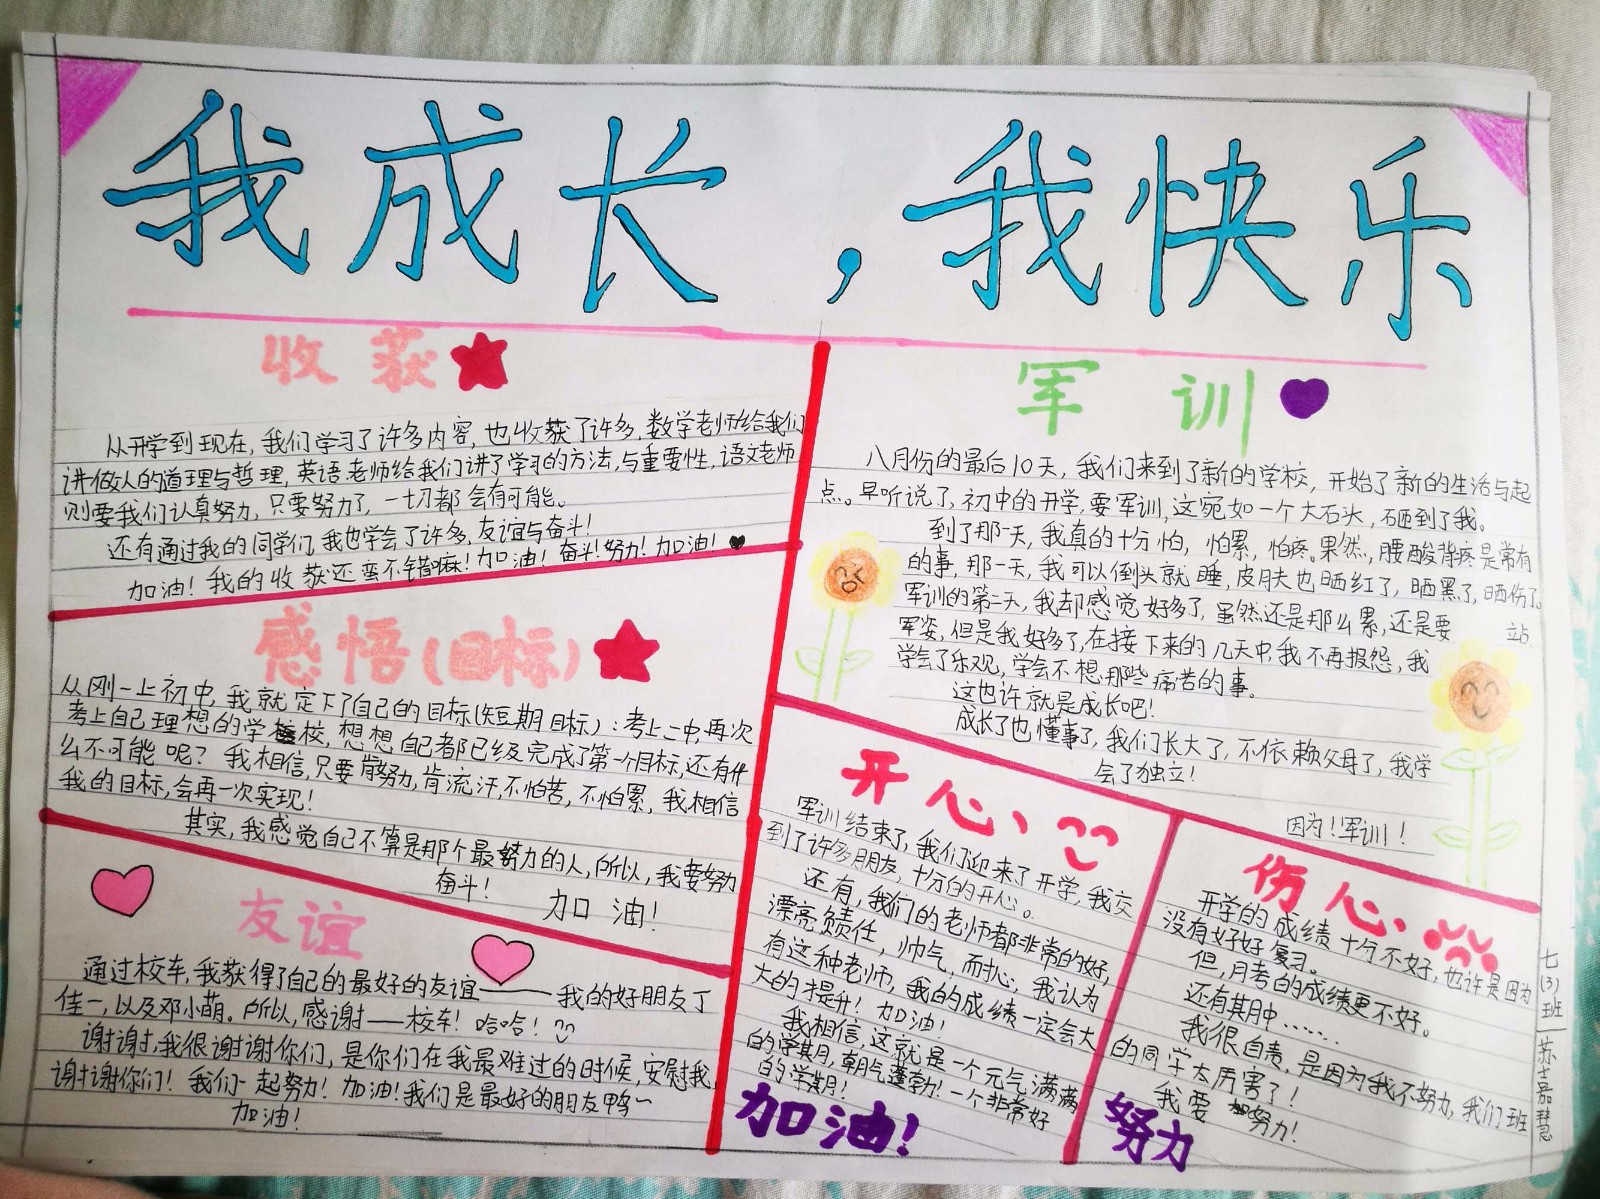 我成长，我快乐
收获
从开学到现在，我们学习了许多内容，也收获了许多，数学老师给我们
讲做人的道理与哲理，英语老师给我们讲了学习的方法，与重要性，语文老师
则要我们认真努力，只要努力了，一切都会有可能。
还有通过我的同学们，我也学会了许多，友谊与奋斗！
加油！我的收获还蛮不错嘛！加油！奋斗！努力！加油！
感悟(目标)
从刚一上初中，我就定下了自己的目标(短期目标)：考上二中，再次
考上自己理想的学校，想想自己都已经完成了第一个目标，还有什
么不可能呢？我相信，只要肯努力，肯流汗，不怕苦，不怕累，我相信
我的目标，会再一次实现！
其实，我感觉自己不算是那个最努力的人，所以，我要努力
奋斗！ 加油！
友谊
通过校车，我获得了自己的最好的友谊——我的好朋友丁
佳一，以及邓小萌。所以，感谢——校车！哈哈！
谢谢，我很谢谢你们，是你们在我最难过的时候，安慰我，
谢谢你们！我们一起努力！加油！我们是最好的朋友鸭~
加油！
军训
八月份的最后10天，我们来到了新的学校，开始了新的生活与起
点。早听说了，初中的开学，要军训，这宛如一个大石头，砸到了我。
到了那一天，我真的十分怕，怕累，怕疼。果然，腰酸背疼是常有
的事，那一天，我可以倒头就睡，皮肤也晒红了，晒黑了，晒伤了。
军训的第二天，我却感觉好多了，虽然还是那么累，还是要站
军姿，但是我好多了，在接下来的几天中，我不再报怨，我
学会了乐观，学会不想那些痛苦的事。
这也许就是成长吧！
成长了也懂事了，我们长大了，不依赖父母了，我学
会了独立！
因为！军训！
开心、
军训结束了，我们迎来了开学，我交
到了许多朋友，十分的开心。
还有，我们的老师都非常的好，
漂亮负责任，帅气，而耐心，我认为
有这种老师，我的成绩一定会大
大的提升！加油！
我相信，这就是一个元气满满
的学期，朝气蓬勃！一个非常好
的学期！
加油！
伤心、
开学的成绩十分不好，也许是因为
没有好好复习。
但，月考的成绩更不好。
还有其中……
我很自责，是因为我不努力，我们班
的同学太厉害了！
我要努力！
努力
七(3)班
苏嘉慧